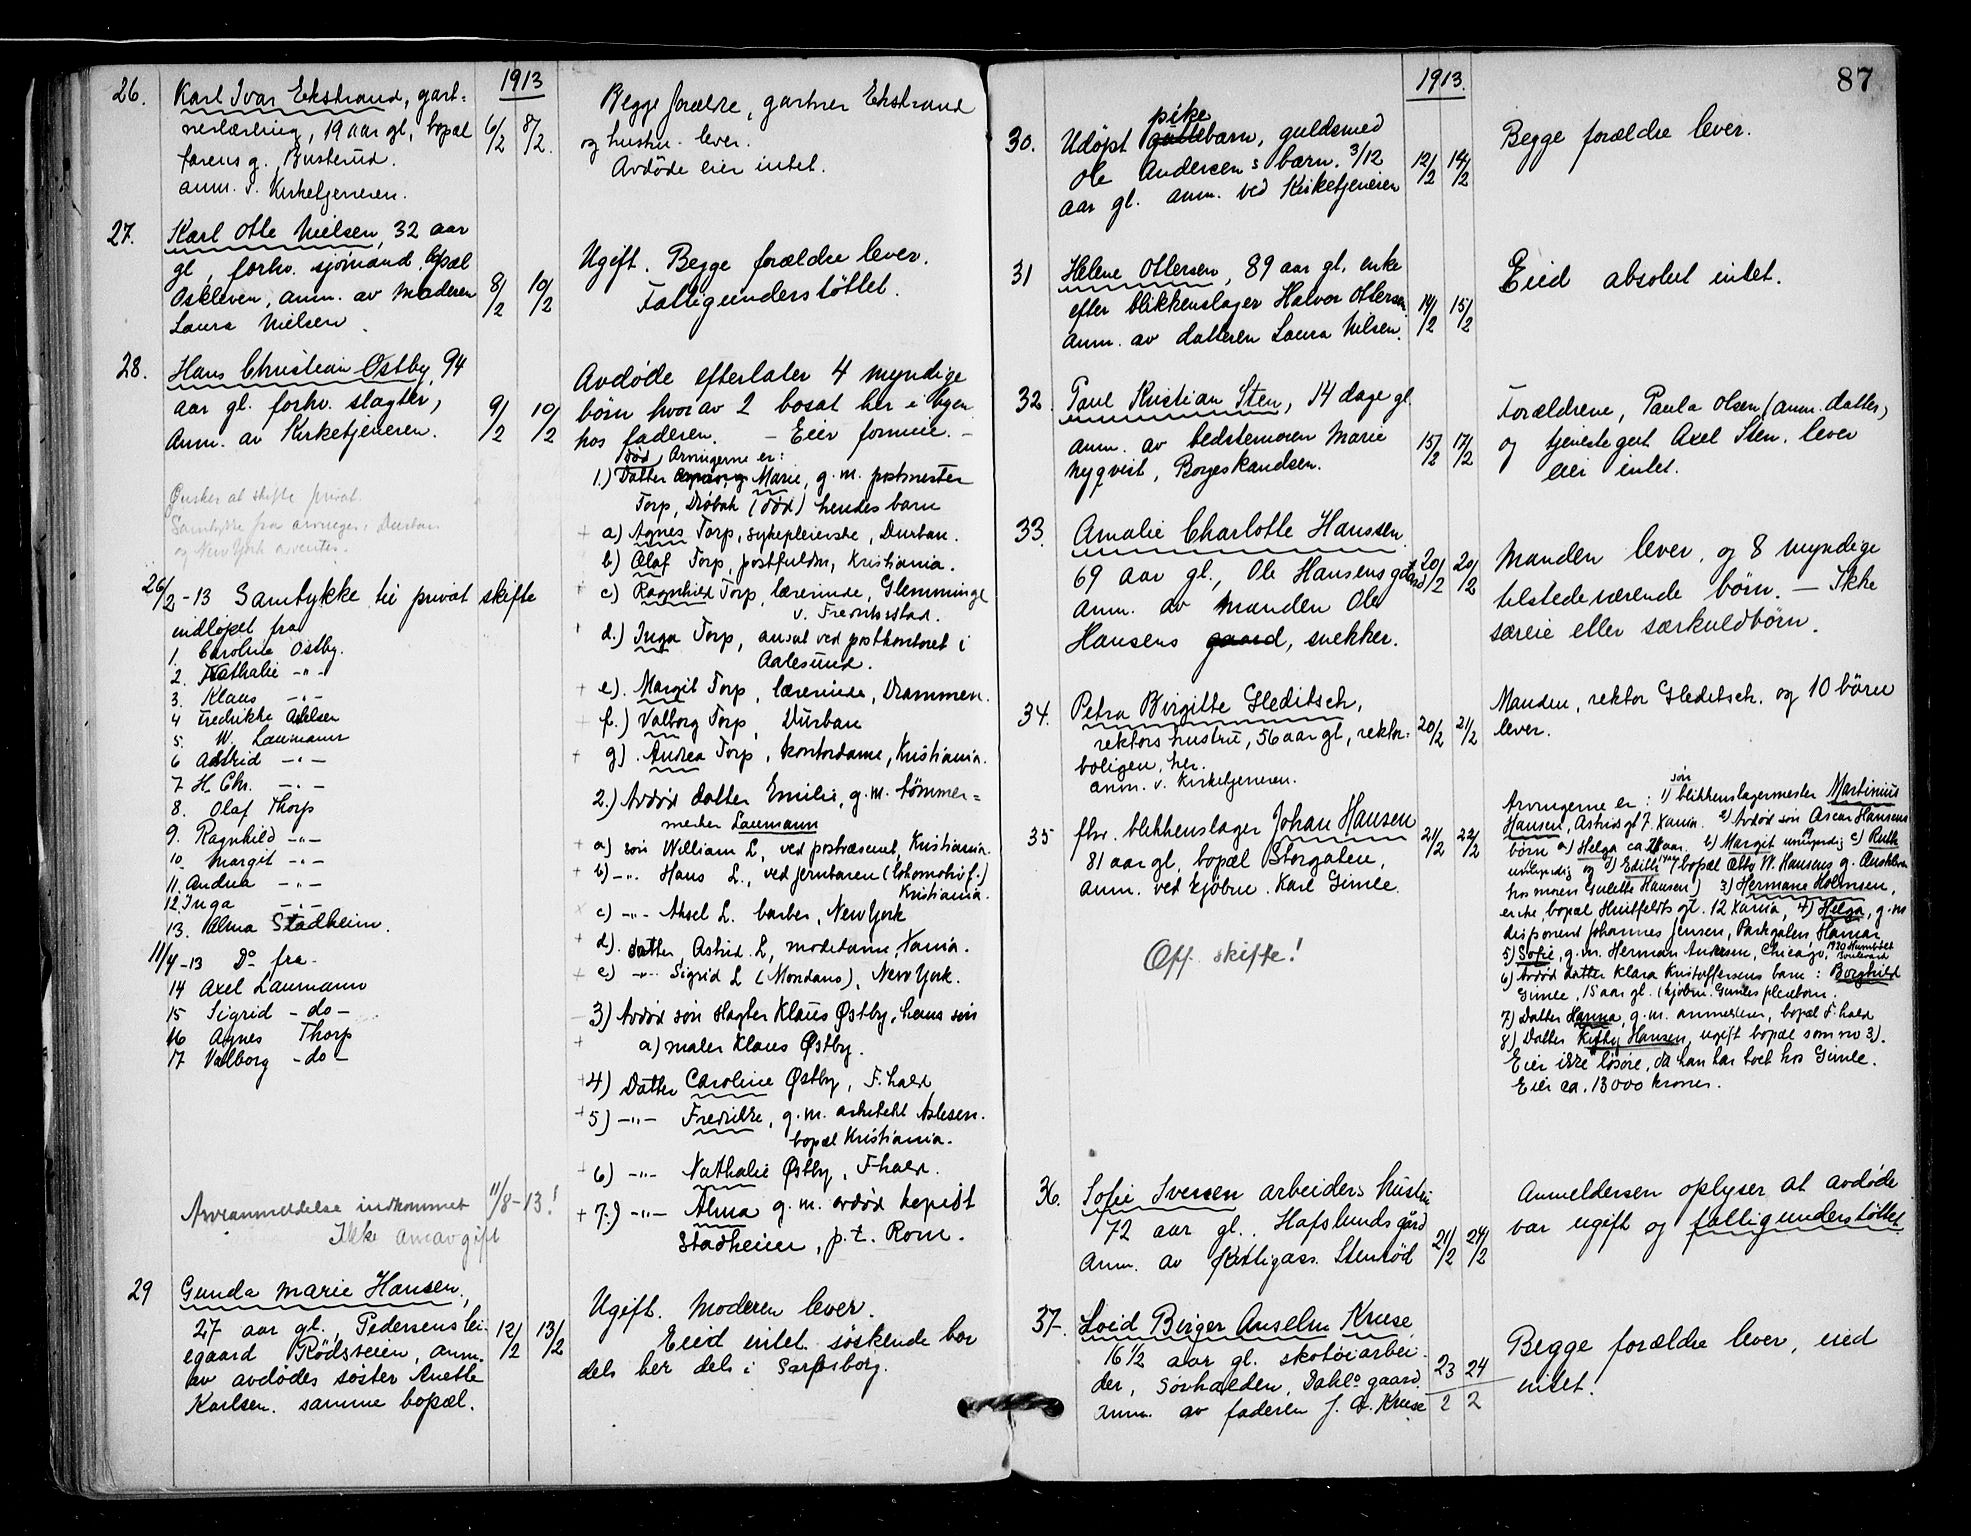 1913
26. Karl Ivar Ekstrand, gart-
nerlærling, 19 aar gl, bopæl 6/2 8/2.
farens g. Busterud.
anm. v. Kirketjeneren.
Begge forældre, gartner Ekstrand
og hustru lever.
Avdøde eier intet.
27. Karl Otto Nielsen, 32 aar
gl, forhv. sjømand, bopæl
Oskleven, anm. av moderen 8/2 10/2
Laura Nielsen.
Ugift. Begge forældre lever.
Fattigunderstöttet.
28. Hans Christian Østby, 94
aar gl. forhv. slagter, 9/2 10/2
Anm. av Kirketjeneren.
Ønsker at skifte privat.
Samtykke fra arvinger i Durban
og New York aventes.
26/2-13 Samtykke til privat skifte
indløpet fra
1. Caroline Østby.
2. Nathalie -"-
3. Klaus -"-
4 Fredrikke Aslesen
5. W. Laumann
6 Astrid -"-
7 H. Chr. -"-
8. Olaf Thorp
9. Ragnhild -"-
10. Margit -"-
11. Andrea -"-
12. Inga -"-
13. Alma Stadheim.
11/4-13 Do fra
14 Axel Laumann
15 Sigrid -do-
16 Agnes Thorp
17 Valborg -do-
Arveanmeldelse indkommet 11/8-13!
Ikke arveavgift
Avdøde efterlater 4 myndige
börn hvorav 2 bosat her i byen
hos faderen. - Eier formue. -
Arvingerne er:
død
1.) Datter Marie, g. m. postmester
Torp, Drøbak (död) hendes barn
+ a) Agnes Torp, sykepleierske, Durban.
b) Olaf Torp, postfuldm, Kristiania.
+ c) Ragnhild Torp, lærerinde, Glemminge
v. Fredrikstad.
+ d.) Inga Torp, ansat ved postkontoret i
Aalesund.
+ e). Margit Torp, lærerinde, Drammen.
+ f.) Valborg Torp, Durban
+ g). Andrea Torp, kontordame, Kristiania.
2.) Avdød datter Emilie, g. m. tømmer-
mester Laumann
+ a) sön William L, ved postvæsenet, Kristiania.
+ b) -"- Hans L., ved jernbanen (lokomotivf.)
Kristiania.
× c) -"- Aksel L. barber, New York
+ d). datter Astrid L, modedame, Xania.
+ e) -"- Sigrid L (Mondans), New York.
3) Avdød søn slagter Klaus Østby, hans søn
+ a) maler Klaus Østby.
+4) Datter Caroline Østby, F.hald
+5) -"- Fredrikke, g. m. arkitekt Aslesen.
bopæl Kristiania.
+ 6) -"- Nathalie Østby, F.hald.
+ 7.) -"- Alma g. m. avdød kopist
Stadheim, p. t. Rom.
29 Gunda Marie Hansen,
27 aar gl., Pedersens lei- 12/2 13/2
egaard Rödsveien, anm.
av avdødes søster Anette
Karlsen. samme bopæl.
Ugift. Moderen lever.
Eied intet. søskende bor
dels her dels i Sarpsborg.
87
1913.
pike
30. Udøpt guttebarn, guldsmed
Ole Andersens barn. 3/12 12/2 14/2
aar gl. anm. ved Kirketjeneren
Begge forældre lever.
31 Helene Ottersen, 89 aar gl. enke
efter blikkenslager Halvor Ottersen. 14/2 15/2
anm. av datteren Laura Nilsen.
Eied absolut intet.
32. Paul Kristian Sten, 14 dage gl.
anm. av bedstemoren Marie 15/2 17/2
Nyqvist, Borgeskandsen.
Forældrene, Paula Olsen (anm. datter)
og tjenestegut Axel Sten. lever
eier intet.
33. Amalie Charlotte Hanssen.
69 aar gl., Ole Hansens gaard 20/2 20/2
anm. av manden Ole
Hansens gaard, snekker.
Manden lever, og 8 myndige
tilstedeværende börn. - Ikke
særeie eller særkuldbörn.
34. Petra Birgitte Gleditsch,
rektors hustru, 56 aar gl, rektor- 20/2 21/2
boligen, her.
anm. v. Kirketjeneren.
Manden, rektor Gleditsch. og 10 börn
lever.
35 fhv. blikkenslager Johan Hansen 21/2 22/2
81 aar gl, bopæl Storgaten,
anm. ved kjøbm. Karl Gimle.
Off. skifte!
søn
Arvingerne er: 1) blikkenslagermester Martinius
Hansen, Astrids gt 7. Xania. 2) Avdød søn Oscar Hansens
börn a) Helga ca 21 aar. b) Margit umyndig c) Ruth
umyndig og d) Edith bopæl Otto W. Hansens g.
hos moren Gulette Hansen) 3) Hermane Holmsen,
enke, bopæl Huitfeldts gt. 12 Xania, 4) Helga, g. m
disponent Johannes Jensen, Parkgaten, Hamar
5) Sofie, g. m. Herman Andersen, Chicago, 1920 Humboldt
Boulevard
6) Avdød datter Klara Kristoffersens barn: Borghild
Gimle, 15 aar gl. (kjøbm. Gimles pleiebarn.
7) Datter Hanna, g. m. anmelderen, bopæl F.hald
8) Datter Kitty Hansen, ugift bopæl som no 3).
Eier ikke løsøre, da han har boet hos Gimle.
Eier ca. 13000 kroner.
36. Sofie Iversen arbeiders hustru
72 aar gl., Hafslunds gård 21/2 24/2
Anm. av Stenrød
Anmeldersen oplyser at avdøde
var ugift og fattigunderstöttet.
37. Loid Birger Anselm Kruse
16 1/2 aar gl. skotøiarbei- 23/2 24/2
der, Sørhalden, Dahls gaard.
anm. av faderen J. A. Kruse
Begge forældre lever, eied
intet.